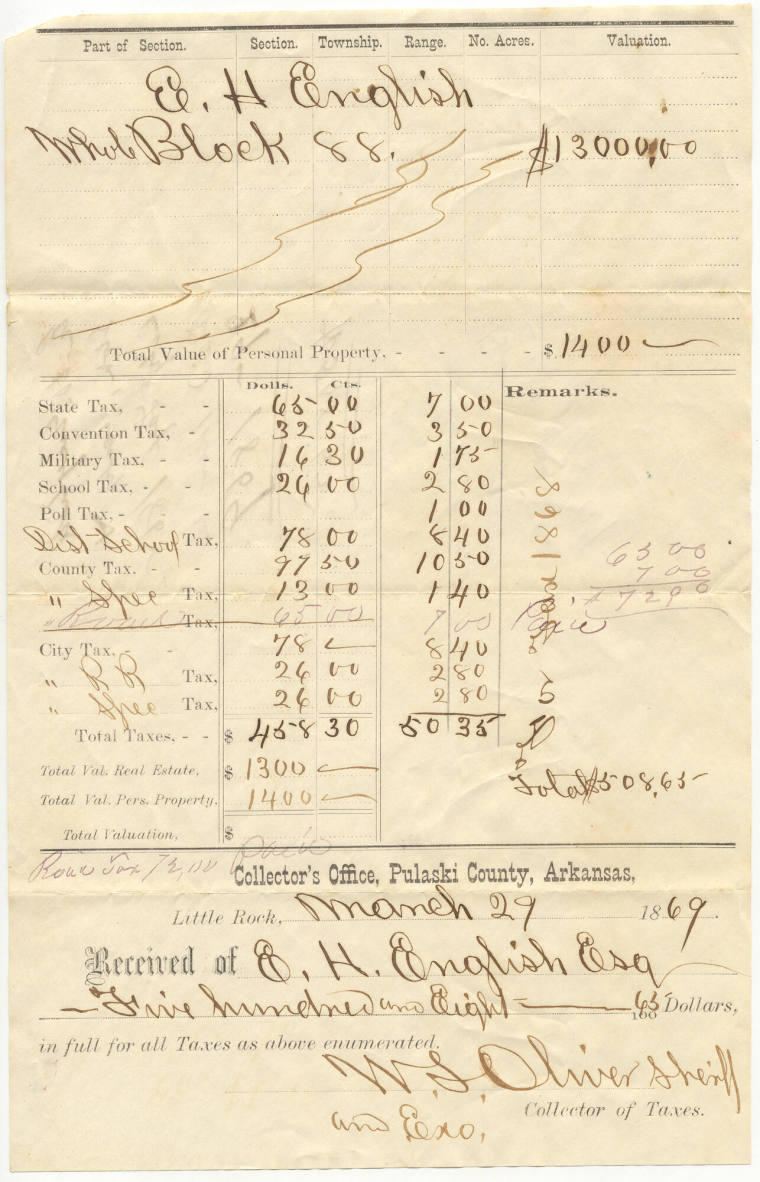 Part of Section. Section. Township. Range. No. Acres. Valuation.
E. H English
Whole Block 88. $13000,00
Total Value of Personal Property, - - - - $ 1400
Dolls. Cts. Remarks.
State Tax, - - 65 00 7 00
Convention Tax, - 32 50 3 50
Military Tax, - - 16 30 1 75
School Tax, - - 26 00 2 80
Poll Tax, - - - 1 00
Dist School Tax, 78 00 8 40
County Tax. - - 97 50 10 50
" Spec Tax, 13 00 1 40
" Tax, 65 00 7 00 Paid
City Tax, - - 78 8 40
" RR Tax, 26 00 2 80
" Spec Tax, 26 00 2 80
Total Taxes, - - $ 458 30 50 35
1868
65 00
7 00
Total Val. Real Estate, $ 1300
Total $508,65
Total Val. Pers. Property, 1400
Total Valuation, $
Road Tax 72,00 Paid
Collector's Office, Pulaski County, Arkansas,
Little Rock, March 29 1869.
Received of E. H. English Esq
Five hundred and Eight 65/100 Dollars,
in full for all Taxes as above enumerated.
W. S. Oliver Sheriff
Collector of Taxes.
and Exo.